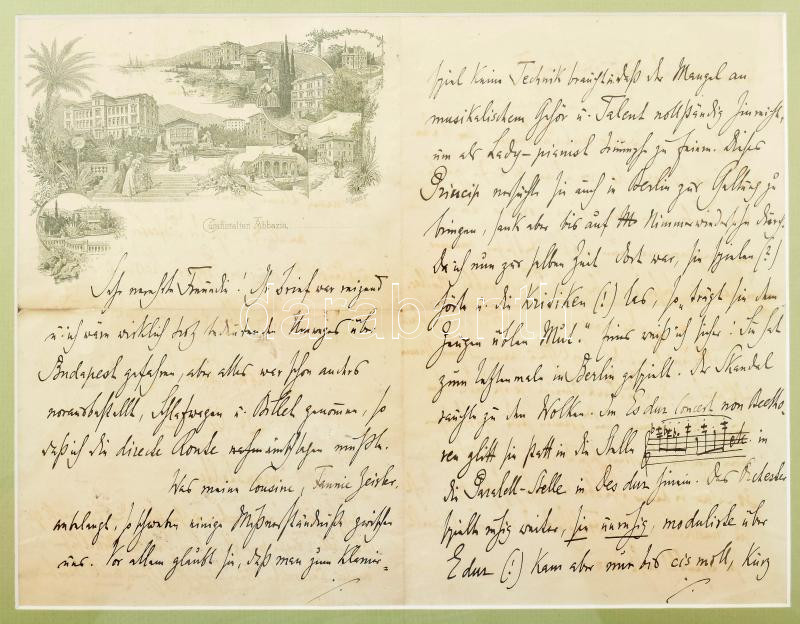 Curanstalten Abbazia.
Sehr verehrte Freundin! Ihr Brief war reizend
u. ich wäre wirklich trotz bedeutenden Umweges über
Budapest gefahren, aber alles war schon anders
vorausbestellt, Schlafwagen u. Billet genommen, so
daß ich die directe Route einschlagen mußte.
Was meine Cousine, Fannie Zeisler,
anbelangt, so schweben einige Mißverständnisse zwischen
uns. Vor allem glaubt sie, daß man zum Klavier-
spiel keine Technik braucht u. daß der Mangel an
musikalischem Gehör u. Talent vollständig hinreicht,
um als Lady-pianist Triumphe zu feiern. Dieses
Princip versuchte sie auch in Berlin zur Geltung zu
bringen, sank aber bis auf Nimmerwiedersehn durch.
Da ich nun zur selben Zeit dort war, sie spielen (?)
hörte u. die Kritiken (!) las, so "trägt sie dem
Zeugen üblen Muth." Eines weiß ich sicher: Sie hat
zum letztenmale in Berlin gespielt. Der Skandal
rauchte zu den Wolken. Im Es dur Concert von Beetho-
ven glitt sie statt in die Stelle etc. in
die Parallel-Stelle in Des dur hinein. Das Orchester
spielte ruhig weiter, sie unruhig, modulirte über
E dur (!) kam aber nur bis cis moll, kurz
darabanth